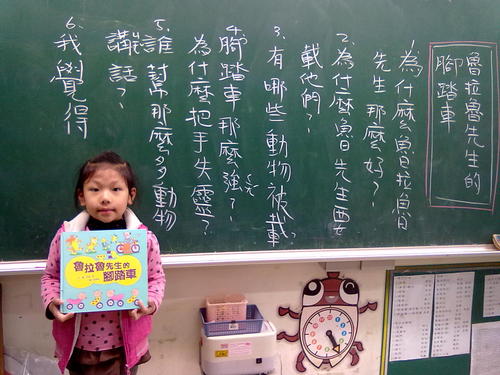 魯拉魯先生的
腳踏車
1.為什麼魯拉魯
先生那麼好？
2.為什麼魯先生要
載他們？
3.有哪些動物被載？
4.腳踏車那麼強？
為什麼把手失靈？
5.誰幫那麼多動物
講話？
6.我覺得
魯拉魯先生的
腳踏車